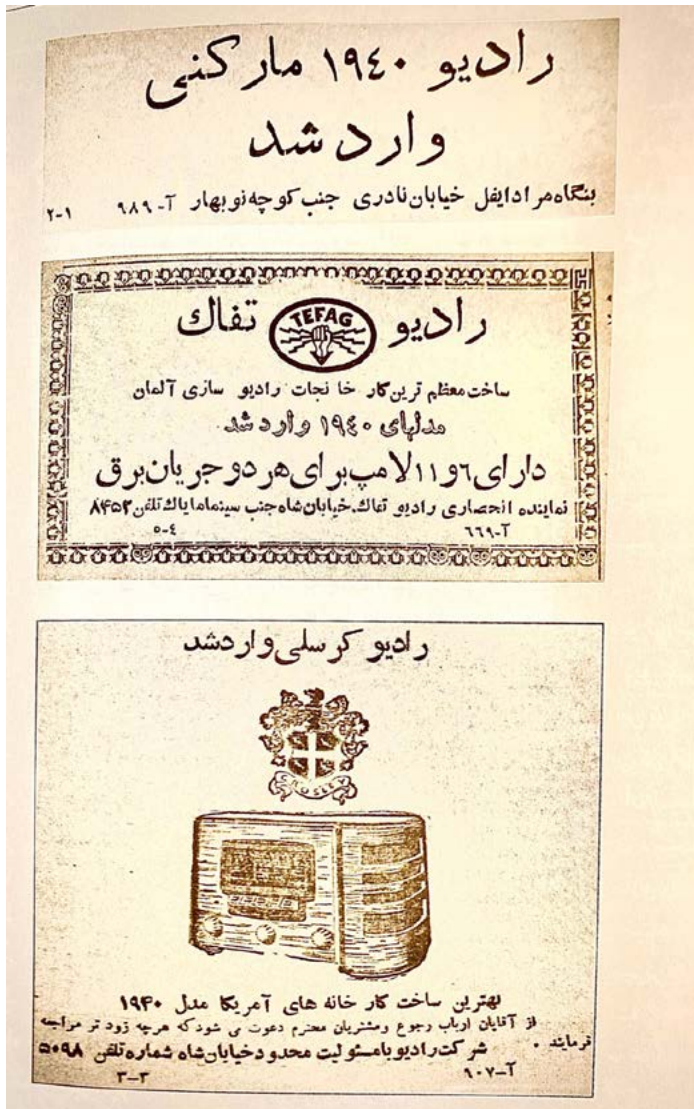 رادیو ۱۹٤۰ مارکنی
وارد شد
بنگاه مرادایفل خیابان نادری جنب کوچه نوبهار آ-۹۸۹ ۲-۱
رادیو TEFAG تفاك
ساخت معظم ترین کار خانجات رادیو سازی آلمان
مدلهای ۱۹٤۰ وارد شد
دارای ٦و۱۱ لامپ برای هر دو جریان برق
نماینده انحصاری رادیو تفاك، خیابان شاه جنب سینما مایاك تلفن ۸۴۵۳
آ-٦٦۹ ۵-٤
رادیو کرسلی وارد شد
CROSLEY
بهترین ساخت کار خانه های آمریکا مدل ۱۹۴۰
از آقایان ارباب رجوع ومشتریان محترم دعوت می شود که هرچه زود تر مراجعه
فرمایند .
شرکت رادیو بامسئولیت محدود خیابان شاه شماره تلفن ۵۰۹۸
آ-٦۰۷ ۳-۳